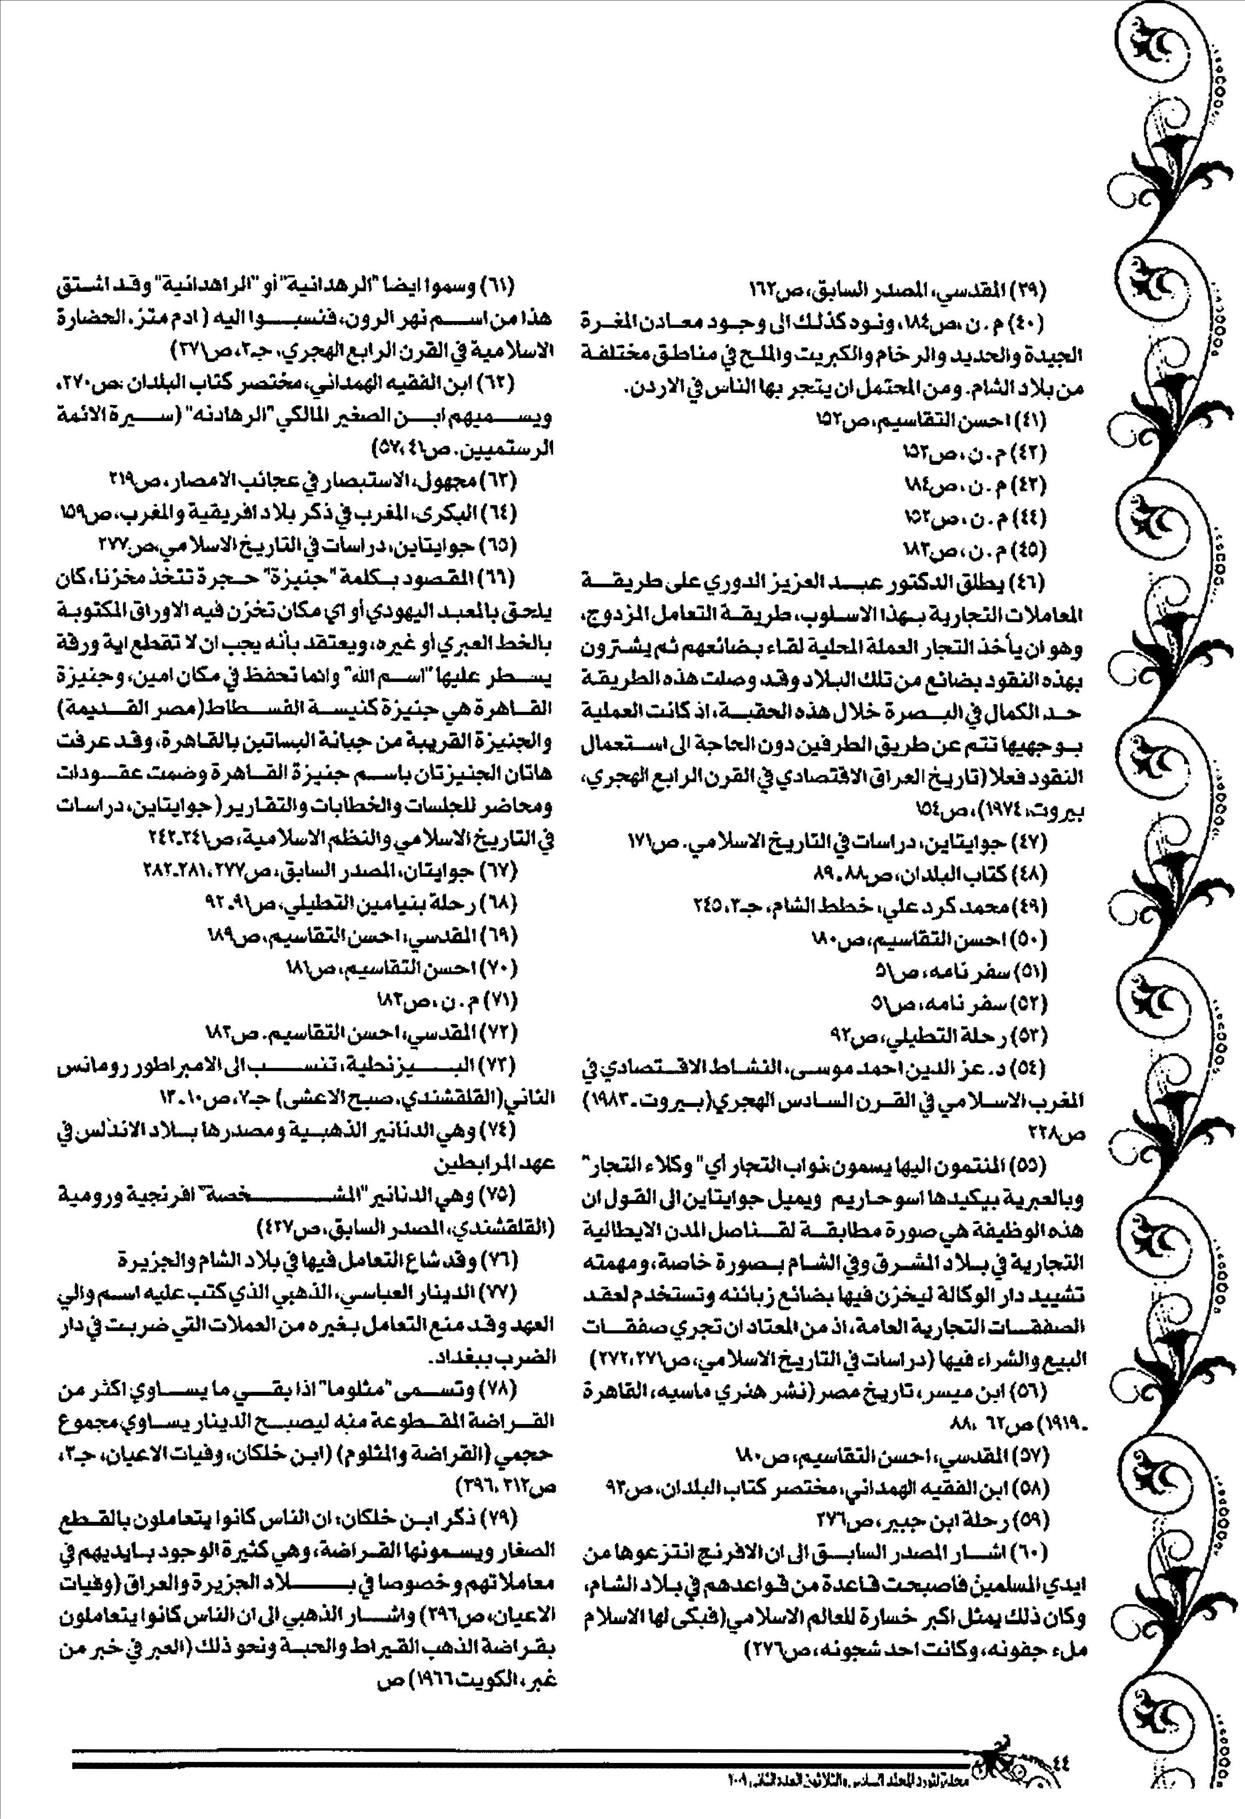 (٣٩) المقدسي، المصدر السابق، ص١٦٢
(٤٠) م . ن، ص١٨٤، ونوه كذلك الى وجود معادن المغرة
الجيدة والحديد والرخام والكبريت والملح في مناطق مختلفة
من بلاد الشام. ومن المحتمل ان يتجر بها الناس في الاردن.
(٤١) احسن التقاسيم، ص١٥٢
(٤٢) م . ن، ص١٥٢
(٤٣) م . ن، ص١٨٤
(٤٤) م . ن، ص١٥٢
(٤٥) م . ن، ص١٨٣
(٤٦) يطلق الدكتور عبد العزيز الدوري على طريقة
المعاملات التجارية بهذا الاسلوب، طريقة التعامل المزدوج،
وهو ان يأخذ التجار العملة المحلية لقاء بضائعهم ثم يشترون
بهذه النقود بضائع من تلك البلاد وقد وصلت هذه الطريقة
حد الكمال في البصرة خلال هذه الحقبة، اذ كانت العملية
بوجهيها تتم عن طريق الطرفين دون الحاجة الى استعمال
النقود فعلا (تاريخ العراق الاقتصادي في القرن الرابع الهجري،
بيروت، ١٩٧٤)، ص١٥٤
(٤٧) جوايتاين، دراسات في التاريخ الاسلامي. ص١٧١
(٤٨) كتاب البلدان، ص٨٨ـ٨٩
(٤٩) محمد كرد علي، خطط الشام، جـ٢، ٢٤٥
(٥٠) احسن التقاسيم، ص١٨٠
(٥١) سفر نامه، ص٥١
(٥٢) سفر نامه، ص٥١
(٥٣) رحلة التطيلي، ص٩٢
(٥٤) د. عز الدين احمد موسى، النشاط الاقتصادي في
المغرب الاسلامي في القرن السادس الهجري (بيروت ـ ١٩٨٣)
ص٢٢٨
(٥٥) المنتمون اليها يسمون، نواب التجار أي" وكلاء التجار"
وبالعبرية بيكيدها اسوحاريم ويميل جوايتاين الى القول ان
هذه الوظيفة هي صورة مطابقة لقناصل المدن الايطالية
التجارية في بلاد المشرق وفي الشام بصورة خاصة، ومهمته
تشييد دار الوكالة ليخزن فيها بضائع زبائنه وتستخدم لعقد
الصفقات التجارية العامة، اذ من المعتاد ان تجري صفقات
البيع والشراء فيها (دراسات في التاريخ الاسلامي، ص٢٧١، ٢٧٢)
(٥٦) ابن ميسر، تاريخ مصر (نشر هنري ماسيه، القاهرة
ـ ١٩١٩) ص٦٢، ٨٨
(٥٧) المقدسي، احسن التقاسيم، ص١٨٠
(٥٨) ابن الفقيه الهمداني، مختصر كتاب البلدان، ص٩٣
(٥٩) رحلة ابن جبير، ص٢٧٦
(٦٠) اشار المصدر السابق الى ان الافرنج انتزعوها من
ايدي المسلمين فاصبحت قاعدة من قواعدهم في بلاد الشام،
وكان ذلك يمثل اكبر خسارة للعالم الاسلامي (فبكى لها الاسلام
ملء جفونه، وكانت احد شجونه، ص٢٧٦)
(٦١) وسموا ايضا "الرهدانية" أو "الراهدانية" وقد اشتق
هذا من اسم نهر الرون، فنسبوا اليه ( ادم متز، الحضارة
الاسلامية في القرن الرابع الهجري، جـ٢، ص٣٧١)
(٦٢) ابن الفقيه الهمداني، مختصر كتاب البلدان، ص٢٧٠،
ويسميهم ابن الصغير المالكي "الرهادنه" (سيرة الائمة
الرستميين. ص٤١، ٥٧)
(٦٣) مجهول، الاستبصار في عجائب الامصار، ص٢١٩
(٦٤) البكري، المغرب في ذكر بلاد افريقية والمغرب، ص١٥٩
(٦٥) جوايتاين، دراسات في التاريخ الاسلامي، ص٢٧٧
(٦٦) المقصود بكلمة "جنيزة" حجرة تتخذ مخزنا، كان
يلحق بالمعبد اليهودي أو اي مكان تخزن فيه الاوراق المكتوبة
بالخط العبري أو غيره، ويعتقد بأنه يجب ان لا تقطع اية ورقة
يسطر عليها "اسم الله" وانما تحفظ في مكان امين، وجنيزة
القاهرة هي جنيزة كنيسة الفسطاط (مصر القديمة)
والجنيزة القريبة من جبانة البساتين بالقاهرة، وقد عرفت
هاتان الجنيزتان باسم جنيزة القاهرة وضمت عقودات
ومحاضر للجلسات والخطابات والتقارير (جوايتاين، دراسات
في التاريخ الاسلامي والنظم الاسلامية، ص٢٤١ـ٢٤٢
(٦٧) جوايتان، المصدر السابق، ص٢٧٧، ٢٨١ـ٢٨٢
(٦٨) رحلة بنيامين التطيلي، ص٩١ـ٩٢
(٦٩) المقدسي، احسن التقاسيم، ص١٨٩
(٧٠) احسن التقاسيم، ص١٨١
(٧١) م . ن، ص١٨٢
(٧٢) المقدسي، احسن التقاسيم. ص١٨٢
(٧٣) البيزنطية، تنسب الى الامبراطور رومانس
الثاني (القلقشندي، صبح الاعشى) جـ٧، ص١٠ـ١٢
(٧٤) وهي الدنانير الذهبية ومصدرها بلاد الاندلس في
عهد المرابطين
(٧٥) وهي الدنانير "المشخصة" افرنجية ورومية
(القلقشندي، المصدر السابق، ص٤٣٧)
(٧٦) وقد شاع التعامل فيها في بلاد الشام والجزيرة
(٧٧) الدينار العباسي، الذهبي الذي كتب عليه اسم والي
العهد وقد منع التعامل بغيره من العملات التي ضربت في دار
الضرب ببغداد.
(٧٨) وتسمى "مثلوما" اذا بقي ما يساوي اكثر من
القراضة المقطوعة منه ليصبح الدينار يساوي مجموع
حجمي (القراضة والمثلوم) (ابن خلكان، وفيات الاعيان، جـ٢،
ص٣١٢، ٣٩٦)
(٧٩) ذكر ابن خلكان، ان الناس كانوا يتعاملون بالقطع
الصغار ويسمونها القراضة، وهي كثيرة الوجود بايديهم في
معاملاتهم وخصوصا في بلاد الجزيرة والعراق (وفيات
الاعيان، ص٣٩٦) واشار الذهبي الى ان الناس كانوا يتعاملون
بقراضة الذهب القيراط والحبة ونحو ذلك (العبر في خبر من
غبر، الكويت ١٩٦٦) ص
٤٤
مجلة المورد المجلد السادس والثلاثون العدد الثاني ٢٠٠٩